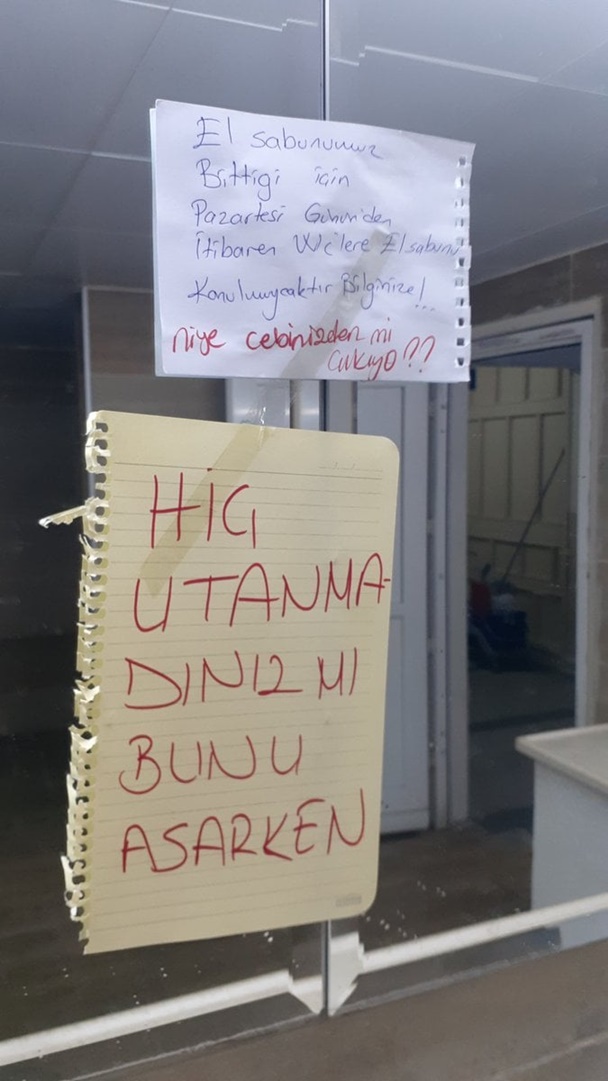 El sabunumuz
Bittigi için
Pazartesi Gününden
itibaren Wc'lere El sabunu
Konulmıycaktır Bilginize!...
niye cebinizden mi
çıkıyo??
HİÇ
UTANMA-
DINIZ MI
BUNU
ASARKEN